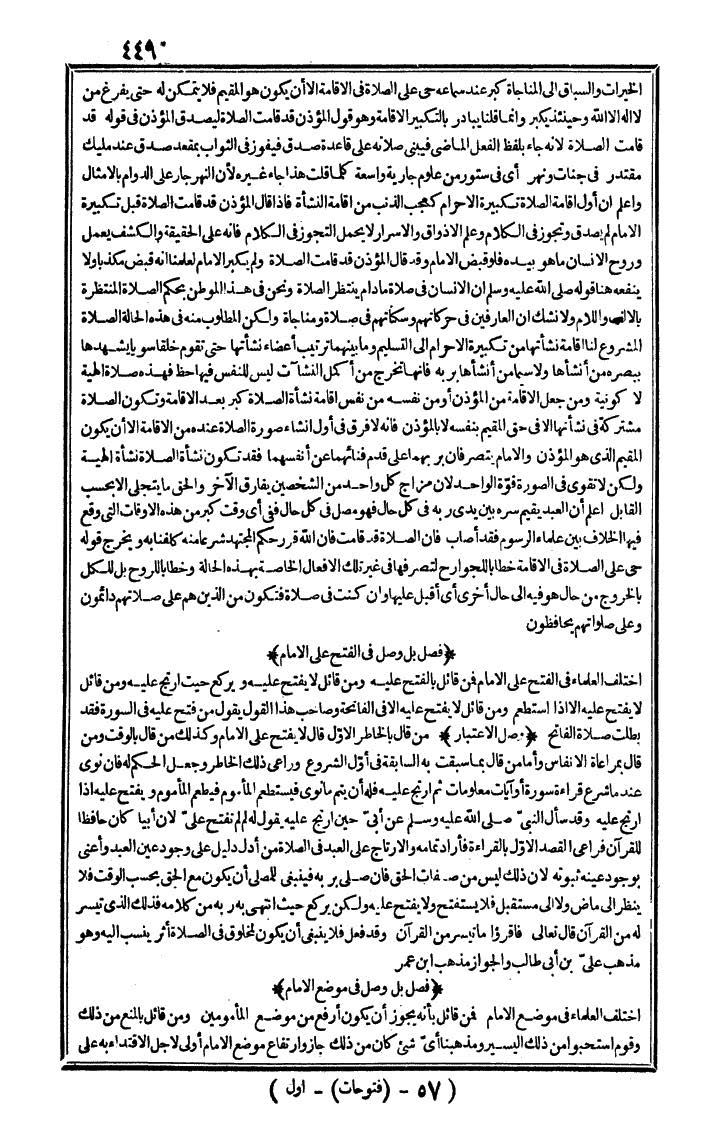 ٤٤٩
الخيرات والسباق الى المناجاة كبر عند سماعه حى على الصلاة فى الاقامة الا أن يكون هو المقيم فلا يتمكن له حتى يفرغ من
لا اله الا الله وحينئذ يكبر وانما قلنا يبادر بالتكبير الاقامة وهو قول المؤذن قد قامت الصلاة ليصدق المؤذن فى قوله قد
قامت الصلاة لانه جاء بلفظ الفعل الماضى فيبنى صلاته على قاعدة صدق فيفوز فى الثواب بمقعد صدق عند مليك
مقتدر فى جنات ونهر أى فى ستور من علوم جارية واسعة كلما قلت هذا جاء غيره لأن النهر جار على الدوام بالامثال
واعلم ان أول اقامة الصلاة تكبيرة الاحرام كعجب الذنب من اقامة النشأة فاذا قال المؤذن قد قامت الصلاة قبل تكبيرة
الامام لم يصدق وتجوز فى الكلام وعلم الاذواق والاسرار لا يحمل التجوز فى الكلام فانه على الحقيقة والكشف يعمل
وروح الانسان ما هو بيده فلو قبض الامام وقد قال المؤذن قد قامت الصلاة ولم يكبر الامام لعلمنا انه قبض مكذبا ولا
ينفعه هنا قوله صلى الله عليه وسلم ان الانسان فى صلاة ما دام ينتظر الصلاة ونحن فى هذا الموطن بحكم الصلاة المنتظرة
بالالف واللام ولا نشك ان العارفين فى حركاتهم وسكاتهم فى صلاة ومناجاة ولكن المطلوب منه فى هذه الحالة الصلاة
المشروع لنا اقامة نشأتها من تكبيرة الاحرام الى التسليم وما بينهما ترتيب أعضاء نشأتها حتى تقوم خلقا سويا يشهدها
ببصره من أنشأها ولا سيما من أنشأها بربه فانها تخرج من أكمل النشآت ليس للنفس فيها حظ فهذه صلاة الهية
لا كونية ومن جعل الاقامة من المؤذن أو من نفسه من نفس اقامة نشأة الصلاة كبر بعد الاقامة وتكون الصلاة
مشتركة فى نشأتها الا فى حق المقيم بنفسه لا بالمؤذن فانه لا فرق فى أول انشاء صورة الصلاة عنده من الاقامة الا أن يكون
المقيم الذى هو المؤذن والامام يتصرفان بربهما على قدم فنائهما عن أنفسهما فقد تكون نشأة الصلاة نشأة الهية
ولكن لا تقوى فى الصورة قوّة الواحد لان مزاج كل واحد من الشخصين يفارق الآخر والحق ما يتجلى الا بحسب
القابل اعلم أن العبد يقيم سره بين يدى ربه فى كل حال فهو مصل فى كل حال ففى أى وقت كبر من هذه الاوقات التى وقع
فيها الخلاف بين علماء الرسوم فقد أصاب فان الصلاة قد قامت فان الله قرر حكم المجتهد شرعا منه كلفنا به ويخرج قوله
حى على الصلاة فى الاقامة خطابا للجوارح لتصرفها فى غير تلك الافعال الخاصة بهذه الحالة وخطابا للروح بل للكل
بالخروج من حال هو فيه الى حال أخرى أى أقبل عليها وان كنت فى صلاة فتكون من الذين هم على صلاتهم دائمون
وعلى صلواتهم يحافظون
﴿فصل بل وصل فى الفتح على الامام﴾
اختلف العلماء فى الفتح على الامام فمن قائل بالفتح عليه ومن قائل لا يفتح عليه ويركع حيث ارتج عليه ومن قائل
لا يفتح عليه الا اذا استطعم ومن قائل لا يفتح عليه الا فى الفاتحة وصاحب هذا القول يقول من فتح عليه فى السورة فقد
بطلت صلاة الفاتح ﴿وصل الاعتبار﴾ من قال بالخاطر الاوّل قال لا يفتح على الامام وكذلك من قال بالوقت ومن
قال بمراعاة الانفاس وأما من قال بما سبقت به السابقة فى أوّل الشروع وراعى ذلك الخاطر وجعل الحكم له فان نوى
عند ما شرع قراءة سورة أو آيات معلومات ثم ارتج عليه فله أن يتم ما نوى فيستطعم المأموم فيطعم المأموم ويفتح عليه اذا
ارتج عليه وقد سأل النبىّ صلى الله عليه وسلم عن أبىّ حين ارتج عليه يقول له لم لم تفتح علىّ لان أبيا كان حافظا
للقرآن فراعى القصد الاوّل بالقراءة فأراد تمامه والارتاج على العبد فى الصلاة من أدل دليل على وجود عين العبد وأعنى
بوجود عينه ثبوته لان ذلك ليس من صفات الحق فان صلى بربه فينبغى للمصلى أن يكون مع الحق بحسب الوقت فلا
ينظر الى ماض ولا الى مستقبل فلا يستفتح ولا يفتح عليه ولكن يركع حيث انتهى به ربه من كلامه فذلك الذى تيسر
له من القرآن قال تعالى فاقرؤا ما تيسر من القرآن وقد فعل فلا ينبغى أن يكون لمخلوق فى الصلاة أثر ينسب اليه وهو
مذهب علىّ بن أبى طالب والجواز مذهب ابن عمر
﴿فصل بل وصل فى موضع الامام﴾
اختلف العلماء فى موضع الامام فمن قائل بأنه يجوز أن يكون أرفع من موضع المأمومين ومن قائل بالمنع من ذلك
وقوم استحبوا من ذلك اليسير ومذهبنا أىّ شئ كان من ذلك جاز وارتفاع موضع الامام أولى لاجل الاقتداء به على
( ٥٧ - (فتوحات) - اول )